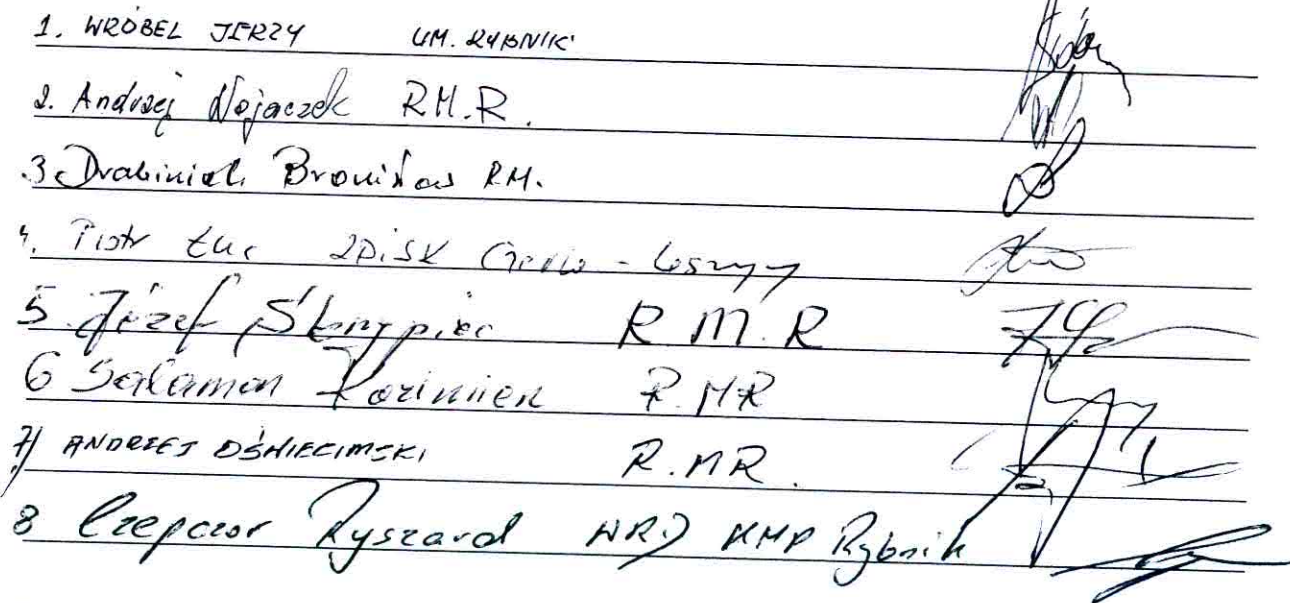 1. WRÓBEL JERZY UM. RYBNIK
2. Andrzej Wojaczek R.M.R.
3 Drabiniok Bronisław R.M.
4. Piotr Łuc ZDiSK
5. Józef Skrzypiec R.M.R
6 Salamon Kazimierz R.MR
7) ANDRZEJ OŚWIECIMSKI R.MR.
8 Czepczor Ryszard WRD KMP Rybnik